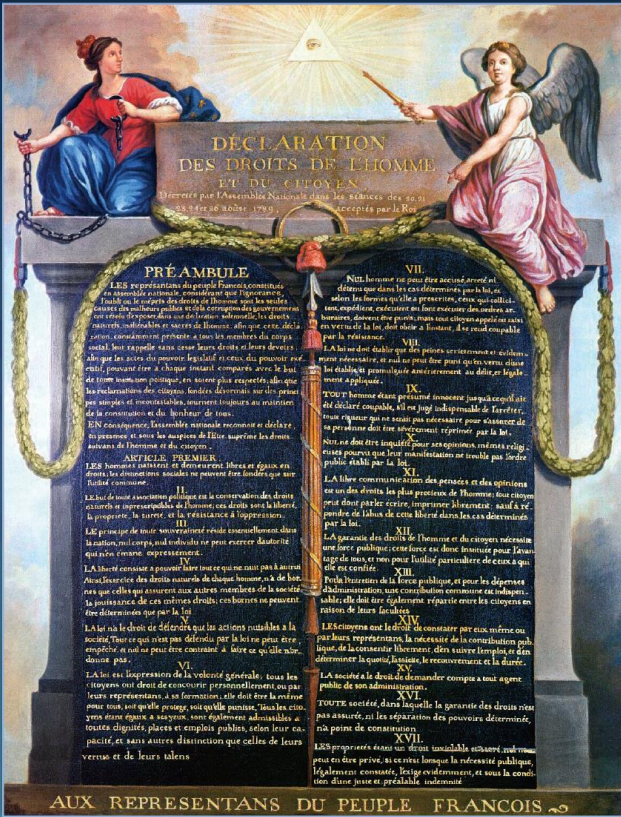 DÉCLARATION
DES DROITS DE L'HOMME
ET DU CITOYEN
Décrétés par l'Assemblée Nationale dans les séances des 20, 21
23, 24 et 26 août 1789, acceptés par le Roi
PRÉAMBULE
LES représentans du peuple François, constitués
en assemblée nationale, considérant que l'ignorance,
l'oubli ou le mépris des droits de l'homme sont les seules
causes des malheurs publics et de la corruption des gouvernemens
ont résolu d'exposer, dans une déclaration solemnelle, les droits
naturels, inaliénables et sacrés de l'homme; afin que cette décla
ration, constamment présente a tous les membres du corps
social, leur rappelle sans cesse leurs droits et leurs devoirs;
afin que les actes du pouvoir législatif et ceux du pouvoir exé
cutif, pouvant être à chaque instant comparés avec le but
de toute institution politique, en soient plus respectés; afin que
les réclamations des citoyens, fondées désormais sur des princi
pes simples et incontestables, tournent toujours au maintien
de la constitution et du bonheur de tous.
EN conséquence, l'assemblée nationale reconnoit et déclare
en presence et sous les auspices de l'Etre suprême les droits
suivans de l'homme et du citoyen.
ARTICLE PREMIER.
LES hommes naissent et demeurent libres et égaux en
droits; les distinctions sociales ne peuvent être fondées que sur
l'utilité commune.
II.
LE but de toute association politique est la conservation des droits
naturels et inprescriptibles de l'homme; ces droits sont la liberté,
la propriété, la sureté, et la résistance à l'oppression.
III.
LE principe de toute souveraineté réside essentiellement dans
la nation, nul corps, nul individu ne peut exercer d'autorité
qui n'en émane expressement.
IV.
LA liberté consiste a pouvoir faire tout ce qui ne nuit pas à autrui
Ainsi, l'exercice des droits naturels de chaque homme, n'a de bor-
nes que celles qui assurent aux autres membres de la société
la jouissance de ces mêmes droits; ces bornes ne peuvent
être déterminées que par la loi
V.
LA loi n'a le droit de défendre que les actions nuisibles à la
société. Tout ce qui n'est pas défendu par la loi ne peut être
empêché, et nul ne peut être contraint à faire ce qu'elle n'or-
donne pas.
VI.
LA loi est l'expression de la volonté générale; tous les
citoyens ont droit de concourir personnellement, ou par
leurs représentans, à sa formation; elle doit être la même
pour tous, soit qu'elle protege, soit qu'elle punisse. Tous les cito-
yens étant égaux a ses yeux, sont également admissibles a
toutes dignités, places et emplois publics, selon leur ca-
pacité, et sans autres distinction que celles de leurs
vertus et de leurs talens
VII.
NUL homme ne peut être accusé, arreté ni
détenu que dans les cas déterminés par la loi, et
selon les formes qu'elle a prescrites, ceux qui sollici-
tent, expédient, exécutent ou font exécuter des ordres ar-
bitraires, doivent être punis; mais tout citoyen appelé ou saisi
en vertu de la loi, doit obéir a l'instant, il se rend coupable
par la résistance.
VIII.
LA loi ne doit établir que des peines strictement et evidem-
ment nécessaire, et nul ne peut être puni qu'en vertu d'une
loi établie et promulguée antérierement au délit, et légale
ment appliquée.
IX.
TOUT homme étant présumé innocent jusqu'à ce qu'il ait
été déclaré coupable, s'il est jugé indispensable de l'arrêter,
toute rigueur qui ne serait pas nécessaire pour s'assurer de
sa personne doit être sévèrement réprimée par la loi.
X.
NUL ne doit être inquiété pour ses opinions, mêmes religi-
euses pourvu que leur manifestation ne trouble pas l'ordre
public établi par la loi.
XI.
LA libre communication des pensées et des opinions
est un des droits les plus precieux de l'homme; tout citoyen
peut donc parler écrire, imprimer librement; sauf à ré-
pondre de l'abus de cette liberté dans les cas déterminés
par la loi.
XII.
LA garantie des droits de l'homme et du citoyen nécessite
une force publique; cette force est donc instituée pour l'avan
tage de tous, et non pour l'utilité particuliere de ceux a qui
elle est confiée.
XIII.
Pour l'entretien de la force publique, et pour les dépenses
d'administration, une contribution commune est indispen-
sable; elle doit être également répartie entre les citoyens en
raison de leurs facultées
XIV.
LES citoyens ont le droit de constater par eux même ou
par leurs représentans, la nécessité de la contribution pub-
lique, de la consentir librement, d'en suivre l'emploi, et d'en
déterminer la quotité, l'assiette, le recouvrement et la durée.
XV.
LA société a le droit de demander compte a tout agent
public de son administration.
XVI.
TOUTE société, dans laquelle la garantie des droits n'est
pas assuré, ni les séparation des pouvoirs déterminée,
n'a point de constitution
XVII.
LES proprietés étant un droit inviolable et sacré, nul ne
peut en être privé, si ce n'est lorsque la nécessité publique,
légalement constatée, l'exige evidemment, et sous la condi-
tion d'une juste et préalable indemnité
AUX REPRESENTANS DU PEUPLE FRANCOIS